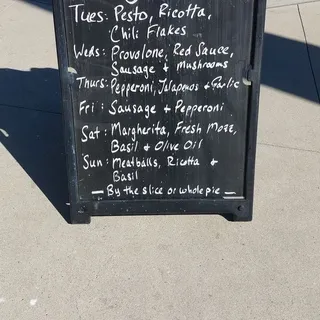 Tues: Pesto, Ricotta,
Chili Flakes
Weds: Provolone, Red Sauce,
Sausage + Mushrooms
Thurs: Pepperoni, Jalapenos + Garlic
Fri: Sausage + Pepperoni
Sat: Margherita, Fresh Mozz,
Basil + Olive Oil
Sun: Meatballs, Ricotta +
Basil
— By the slice or whole pie —